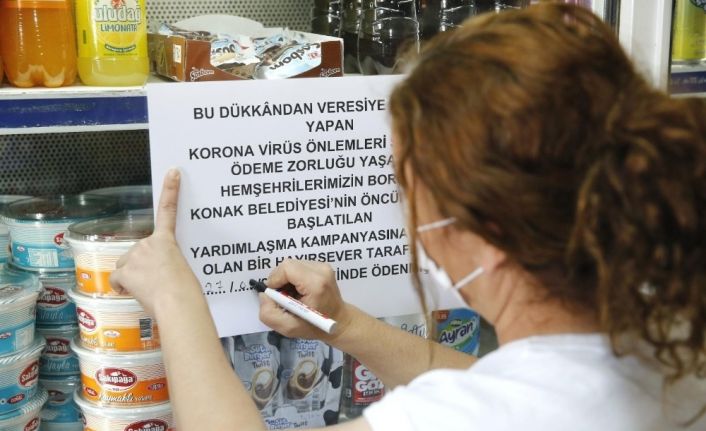 uludağ
LİMONATA
BU DÜKKÂNDAN VERESİYE
YAPAN
KORONA VİRÜS ÖNLEMLERİ
ÖDEME ZORLUĞU YAŞA
HEMŞEHRİLERİMİZİN BOR
KONAK BELEDİYESİ'NİN ÖNCÜ
BAŞLATILAN
YARDIMLAŞMA KAMPANYASINA
OLAN BİR HAYIRSEVER TARAF
İNDE ÖDEN
Sakıpağa
Sakıpağa
Sakıpağa
kaymaklı
Ayran